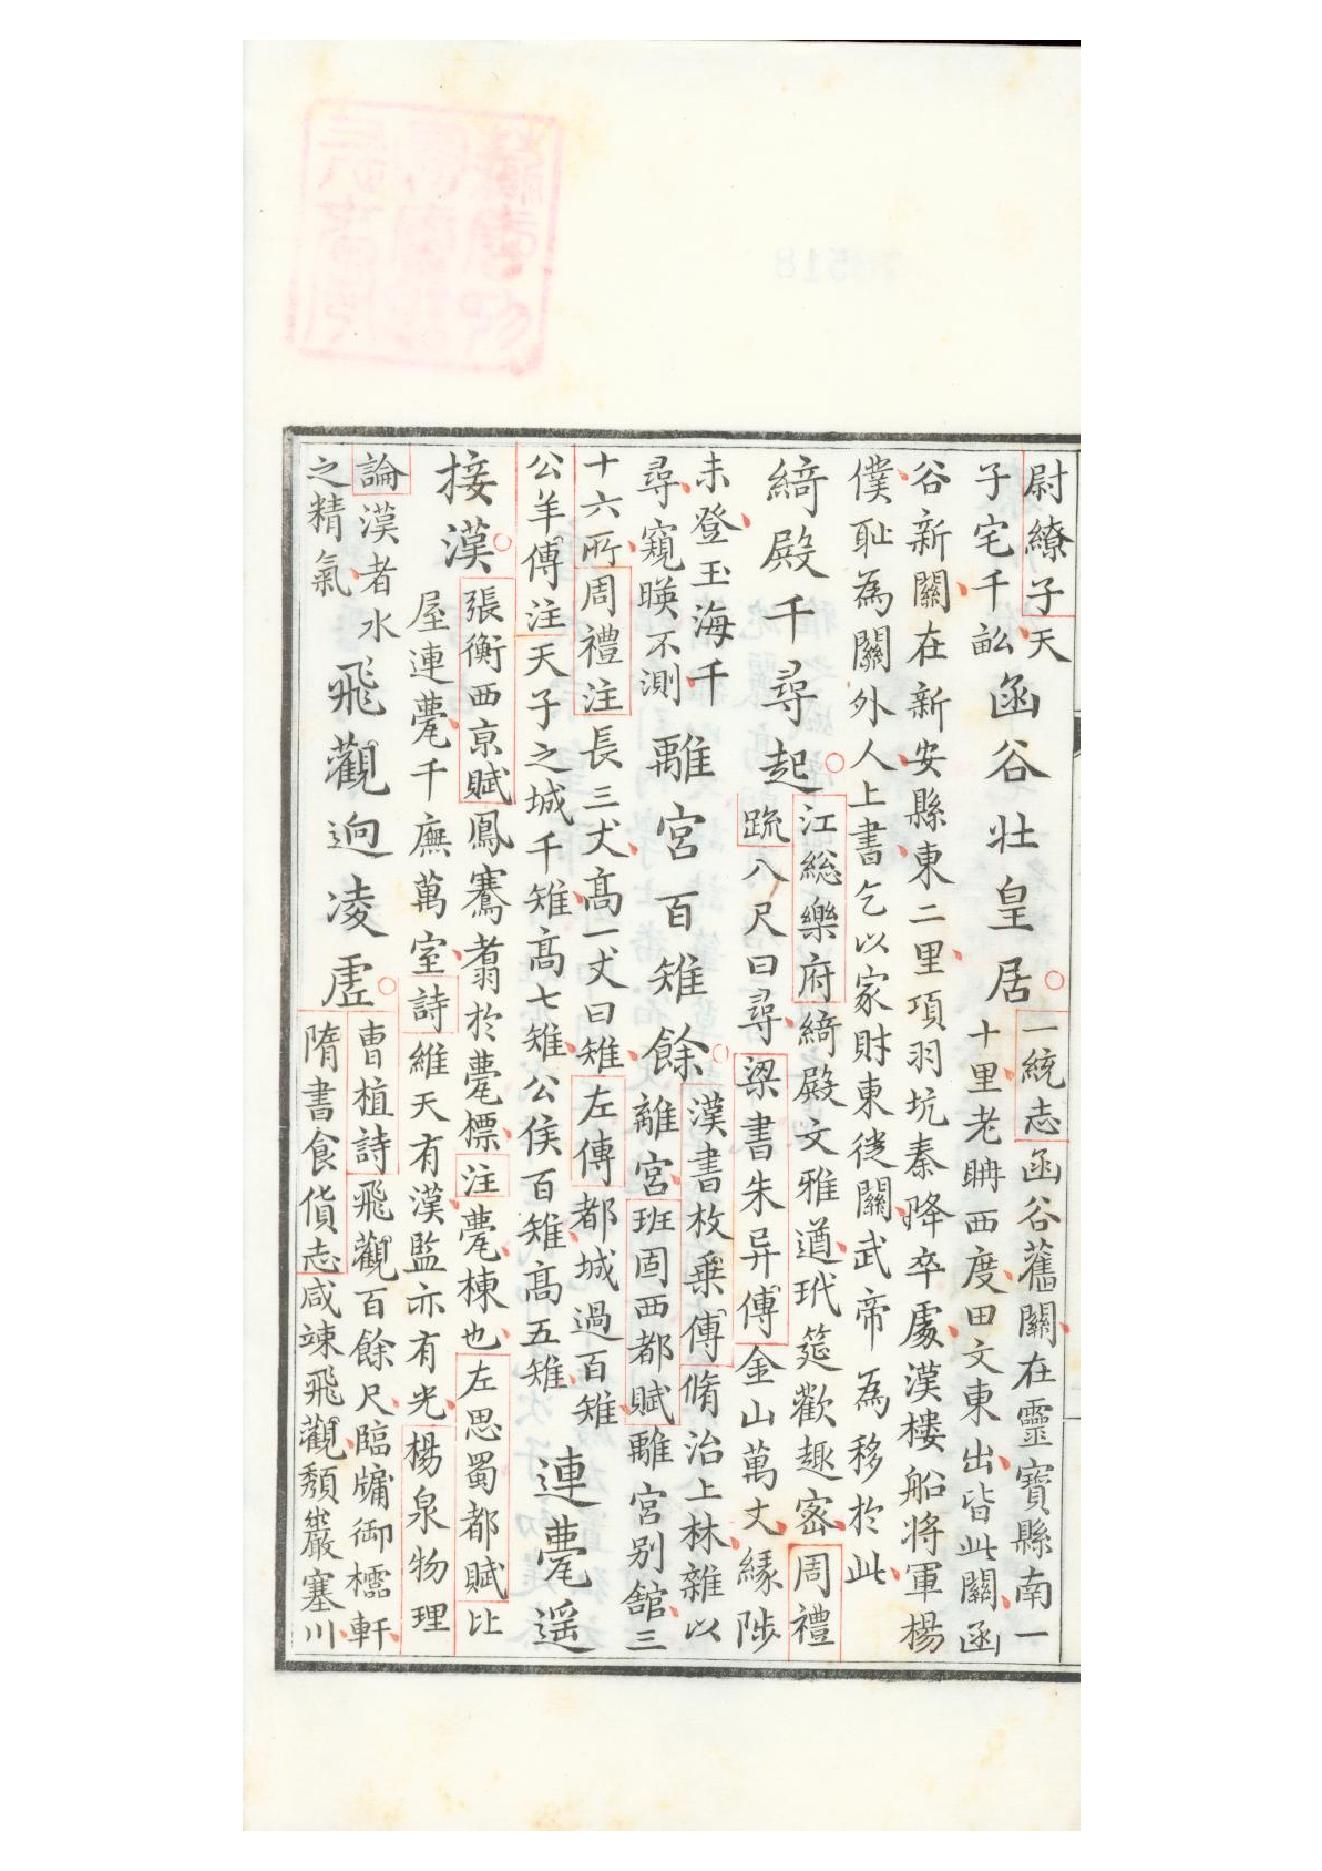 尉繚子天
子宅千畝
函谷壯皇居
一統志函谷舊關在靈寶縣南一
十里老聃西度田文東出皆此關函
谷新關在新安縣東二里項羽坑秦降卒處漢樓船將軍楊
僕恥為關外人上書乞以家財東徙關武帝為移於此
綺殿千尋起
江総樂府綺殿文雅遒玳筵歡趣密周禮
疏八尺曰尋梁書朱异傳金山萬丈緣陟
未登玉海千
尋窺暎不測
離宮百雉餘
漢書枚乗傳脩治上林雜以
離宮班固西都賦離宮别舘三
十六所周禮注長三丈高一丈曰雉左傳都城過百雉
公羊傳注天子之城千雉高七雉公侯百雉高五雉
連甍遥
接漢
張衡西京賦鳳騫翥於甍標注甍棟也左思蜀都賦比
屋連甍千廡萬室詩維天有漢監亦有光楊泉物理
論漢者水
之精氣
飛觀迥凌虛
曹植詩飛觀百餘尺臨牖御櫺軒
隋書食貨志咸竦飛觀頹巖塞川